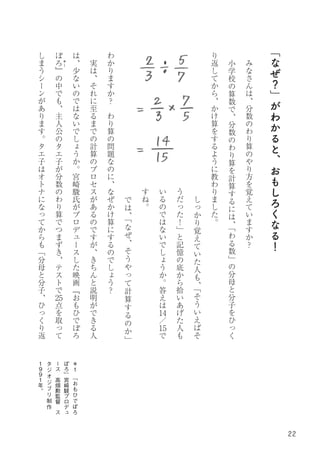 「なぜ？」がわかると、おもしろくなる！
みなさんは、分数のわり算のやり方を覚えていますか？
小学校の算数で、分数のわり算を計算するには、「わる数」の分母と分子をひっく
り返してから、かけ算をするように教わりました。
2/3 ÷ 5/7
= 2/3 × 7/5
= 14/15
しっかり覚えていた人も、「そういえばそ
うだった！」と記憶の底から拾いあげた人も
いるのではないでしょうか。答えは14／15で
すね。
では、「なぜ、そうやって計算するのか」
わかりますか？ わり算の問題なのに、なぜかけ算にするのでしょう？
実は、それに至るまでの計算のプロセスがあるのですが、きちんと説明ができる人
は、少ないのではないでしょうか。宮崎駿氏がプロデュースした映画『おもひでぽろ
ぽろ』＊1の中でも、主人公のタエ子が分数のわり算でつまずき、テストで25点を取って
しまうシーンがあります。タエ子はオトナになってからも「分母と分子、ひっくり返
＊1 『おもひでぽろ
ぽろ』宮崎駿プロデュ
ース 高畑勲監督 ス
タジオジブリ制作
1991年。
22